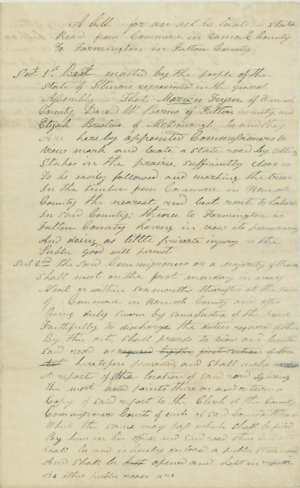 A bill for an act to locate a state
Road from Commerce in Hancock County
to Farmington in Fulton County
Sect 1st Be it enacted by the people of the
State of Illinois represented in the General
Assembly That of Hancock
County David W. of Fulton County and
Elijah of McDonough be and they
are hereby appointed Commissioners to
view mark and locate a state road by setting
Stakes in the prairie sufficiently close as
To be easily followed and marking the trees
In the timber from Commerce in Hancock
County the nearest and best route to
in said County; thence to Farmington in
Fulton County having in view its permanency
And doing as little private injury as the
Public good will permit
Sect 2d Said Commissioners or a majority of them
Shall meet on the first monday in
next or within six months thereafter at the town
of Commerce in Hancock County and after
Being duly sworn by some Justice of the peace
Faithfully to discharge the duties required of them
by this act, shall proceed to view and locate
said road as
heretofore and shall make
a report of the location of said road
the most noted points there on and return a
Copy of said report to the Clerk of the County
Commissioners Court of each of said Counties through
Which the same may pass which shall be filed
By him in his office and said road when
Shall be and is hereby declared a public state road
And shall be opened and kept in repair
as other public roads are